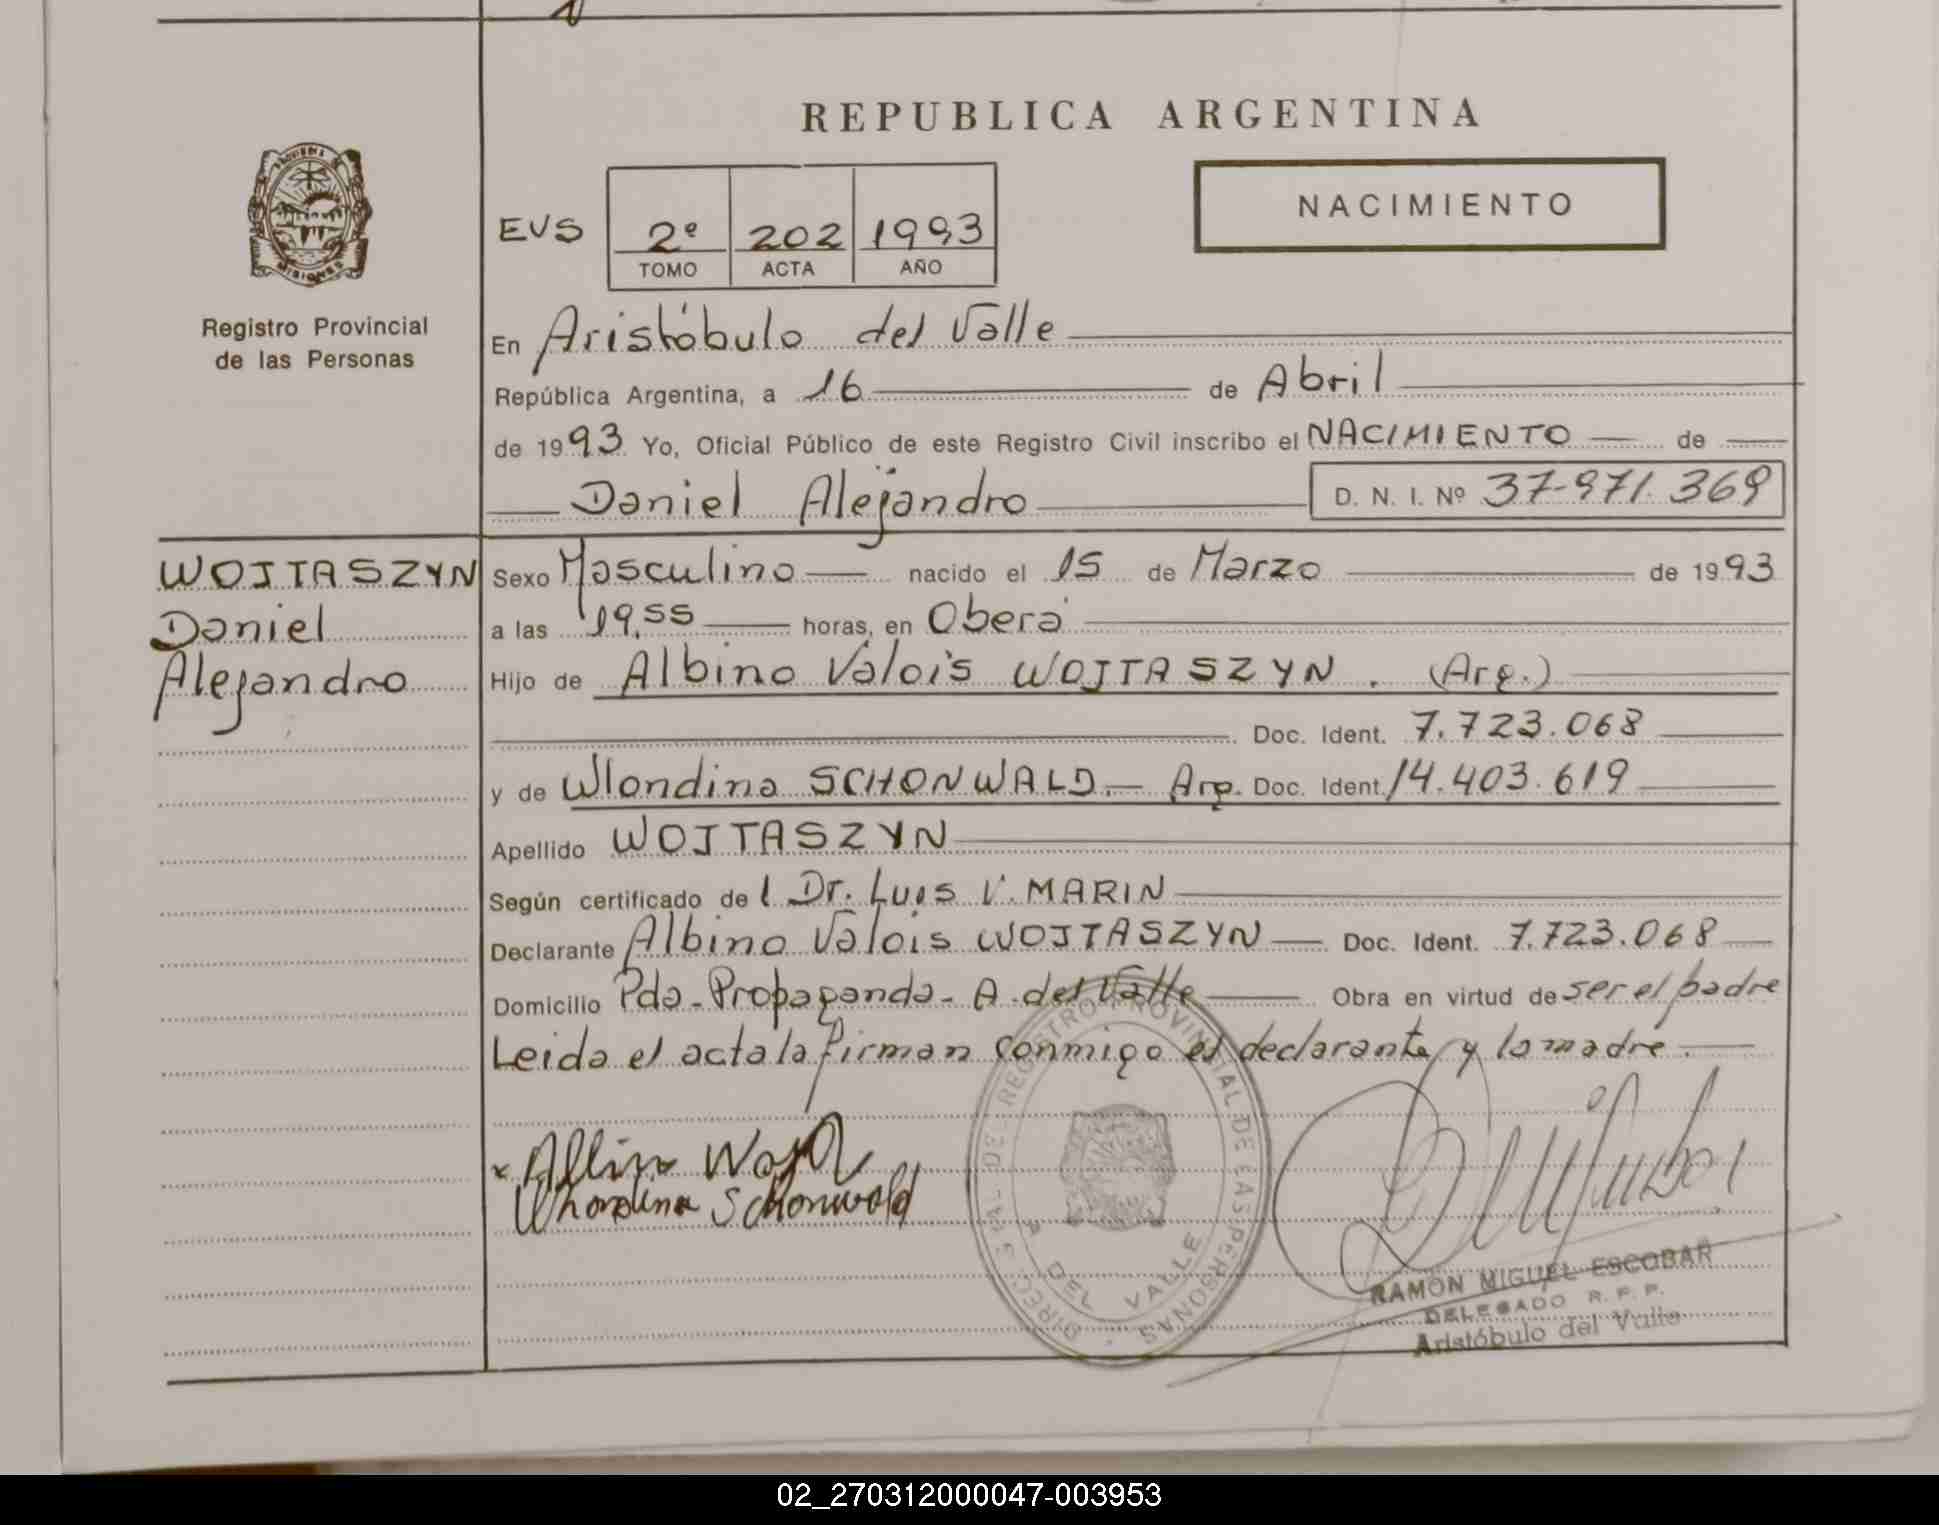 REPUBLICA ARGENTINA
NACIMIENTO
EVS 2º 202 1993
TOMO ACTA AÑO
PROVINCIA DE MISIONES
Registro Provincial
de las Personas
En Aristóbulo del Valle
República Argentina, a 16 de Abril
de 1993 Yo, Oficial Público de este Registro Civil inscribo el NACIMIENTO de
Daniel Alejandro D. N. I. Nº 37.971.369
WOJTASZYN
Daniel
Alejandro
Sexo Masculino nacido el 15 de Marzo de 1993
a las 19,55 horas, en Oberá
Hijo de Albino Valois WOJTASZYN. (Arg.)
Doc. Ident. 7.723.068
y de Wlondina SCHONWALD.- Arg. Doc. Ident. 14.403.619
Apellido WOJTASZYN
Según certificado de l Dr. Luis V. MARIN
Declarante Albino Valois WOJTASZYN Doc. Ident. 7.723.068
Domicilio Pda-Propaganda- A. del Valle Obra en virtud de ser el padre
Leida el acta la firman conmigo el declarante y la madre.
x Albino
Schonwald
DIRECC. GRAL. DEL REGISTRO PROVINCIAL DE LAS PERSONAS
A. DEL VALLE
RAMON MIGUEL ESCOBAR
DELEGADO R. P. P.
Aristóbulo del Valle
02_270312000047-003953